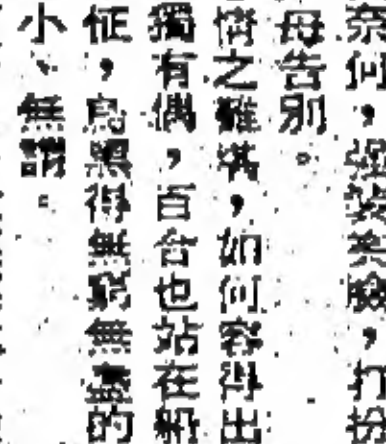 奈何，強裝笑臉，打扮
母告別。
情之難堪，如何容得出
獨有偶，百合也站在船
怔，烏黑得無窮無盡的
小、無謂。